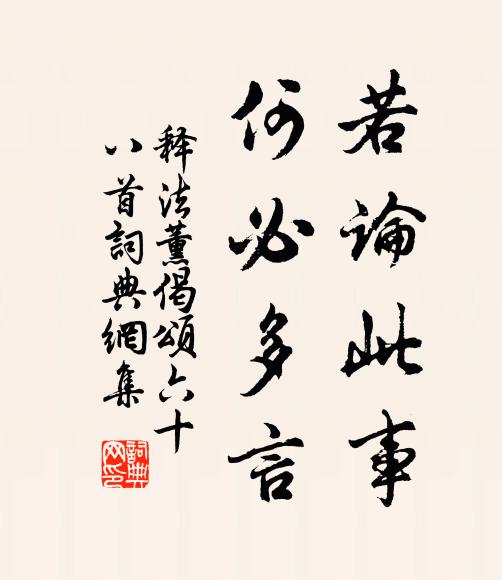 若論此事
何必多言
释法薰偈頌六十
八首詞典網集
詞典网印